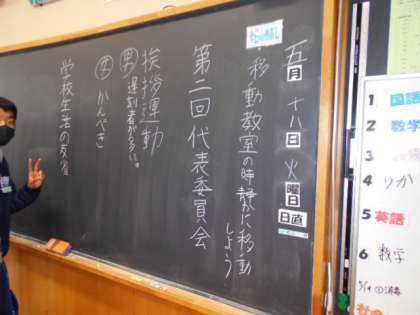 五月十八日火曜日
日直
移動教室の時静かに移動しよう
第二回代表委員会
挨拶運動
男 遅刻者が多い。
女 かんぺき
学校生活の反省
1 国語
2 数学
3
4 りか
5 英語
6 数学